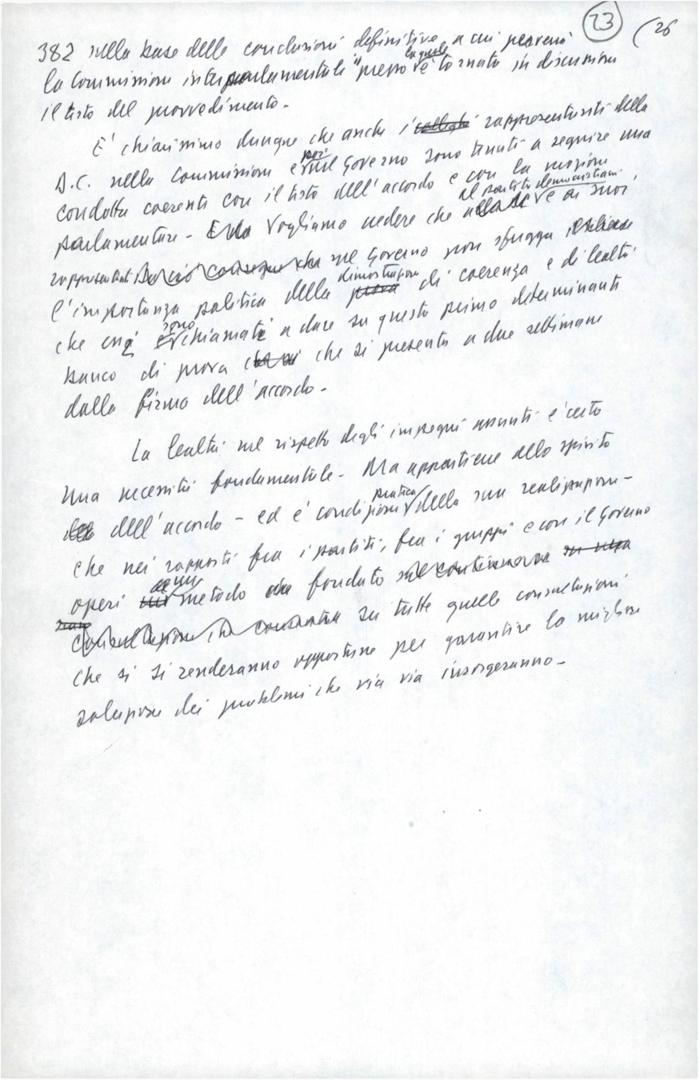 23 (26
382 sulla base delle conclusioni definitive a cui perverrà
la Commissione interparlamentare" presso la quale è tornato in discussione
il testo del provvedimento.-
E' chiarissimo dunque che anche i rappresentanti della
D.C. nella Commissione e poi nel Governo sono tenuti a seguire una
condotta coerente con il testo dell'accordo e con la mozione
parlamentare - Vogliamo vedere che al partito democristiano e ai suoi
rappresentanti nel Governo non sfugga
l'importanza politica della dimostrazione di coerenza e di lealtà
che sono chiamati a dare su questo primo determinante
banco di prova che si presenta a due settimane
dalla firma dell'accordo.-
La lealtà nel rispetto degli impegni assunti è certo
una necessità fondamentale. Ma appartiene allo spirito
dell'accordo - ed è condizione pratica della sua realizzazione -
che nei rapporti fra i partiti, fra i gruppi e con il Governo
operi un metodo fondato
su tutte quelle consultazioni
che si si renderanno opportune per garantire la migliore
soluzione dei problemi che via via insorgeranno.-